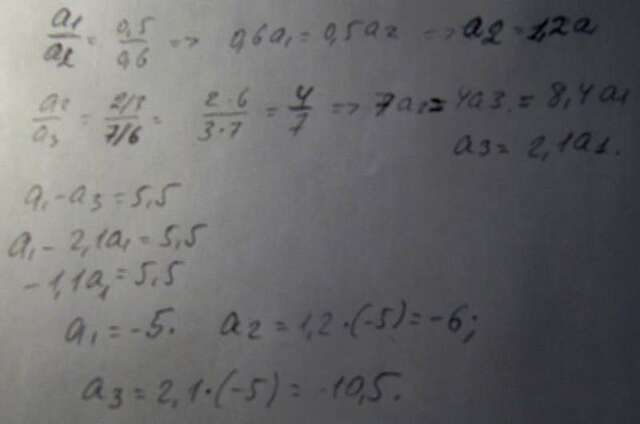 a1/a2 = 0,5/0,6 => 0,6a1 = 0,5a2 => a2 = 1,2a1
a2/a3 = 2/3 / 7/6 = 2·6/3·7 = 4/7 => 7a2 = 4a3 = 8,4a1
a3 = 2,1a1.
a1 - a3 = 5,5
a1 - 2,1a1 = 5,5
-1,1a1 = 5,5
a1 = -5. a2 = 1,2·(-5) = -6;
a3 = 2,1·(-5) = -10,5.